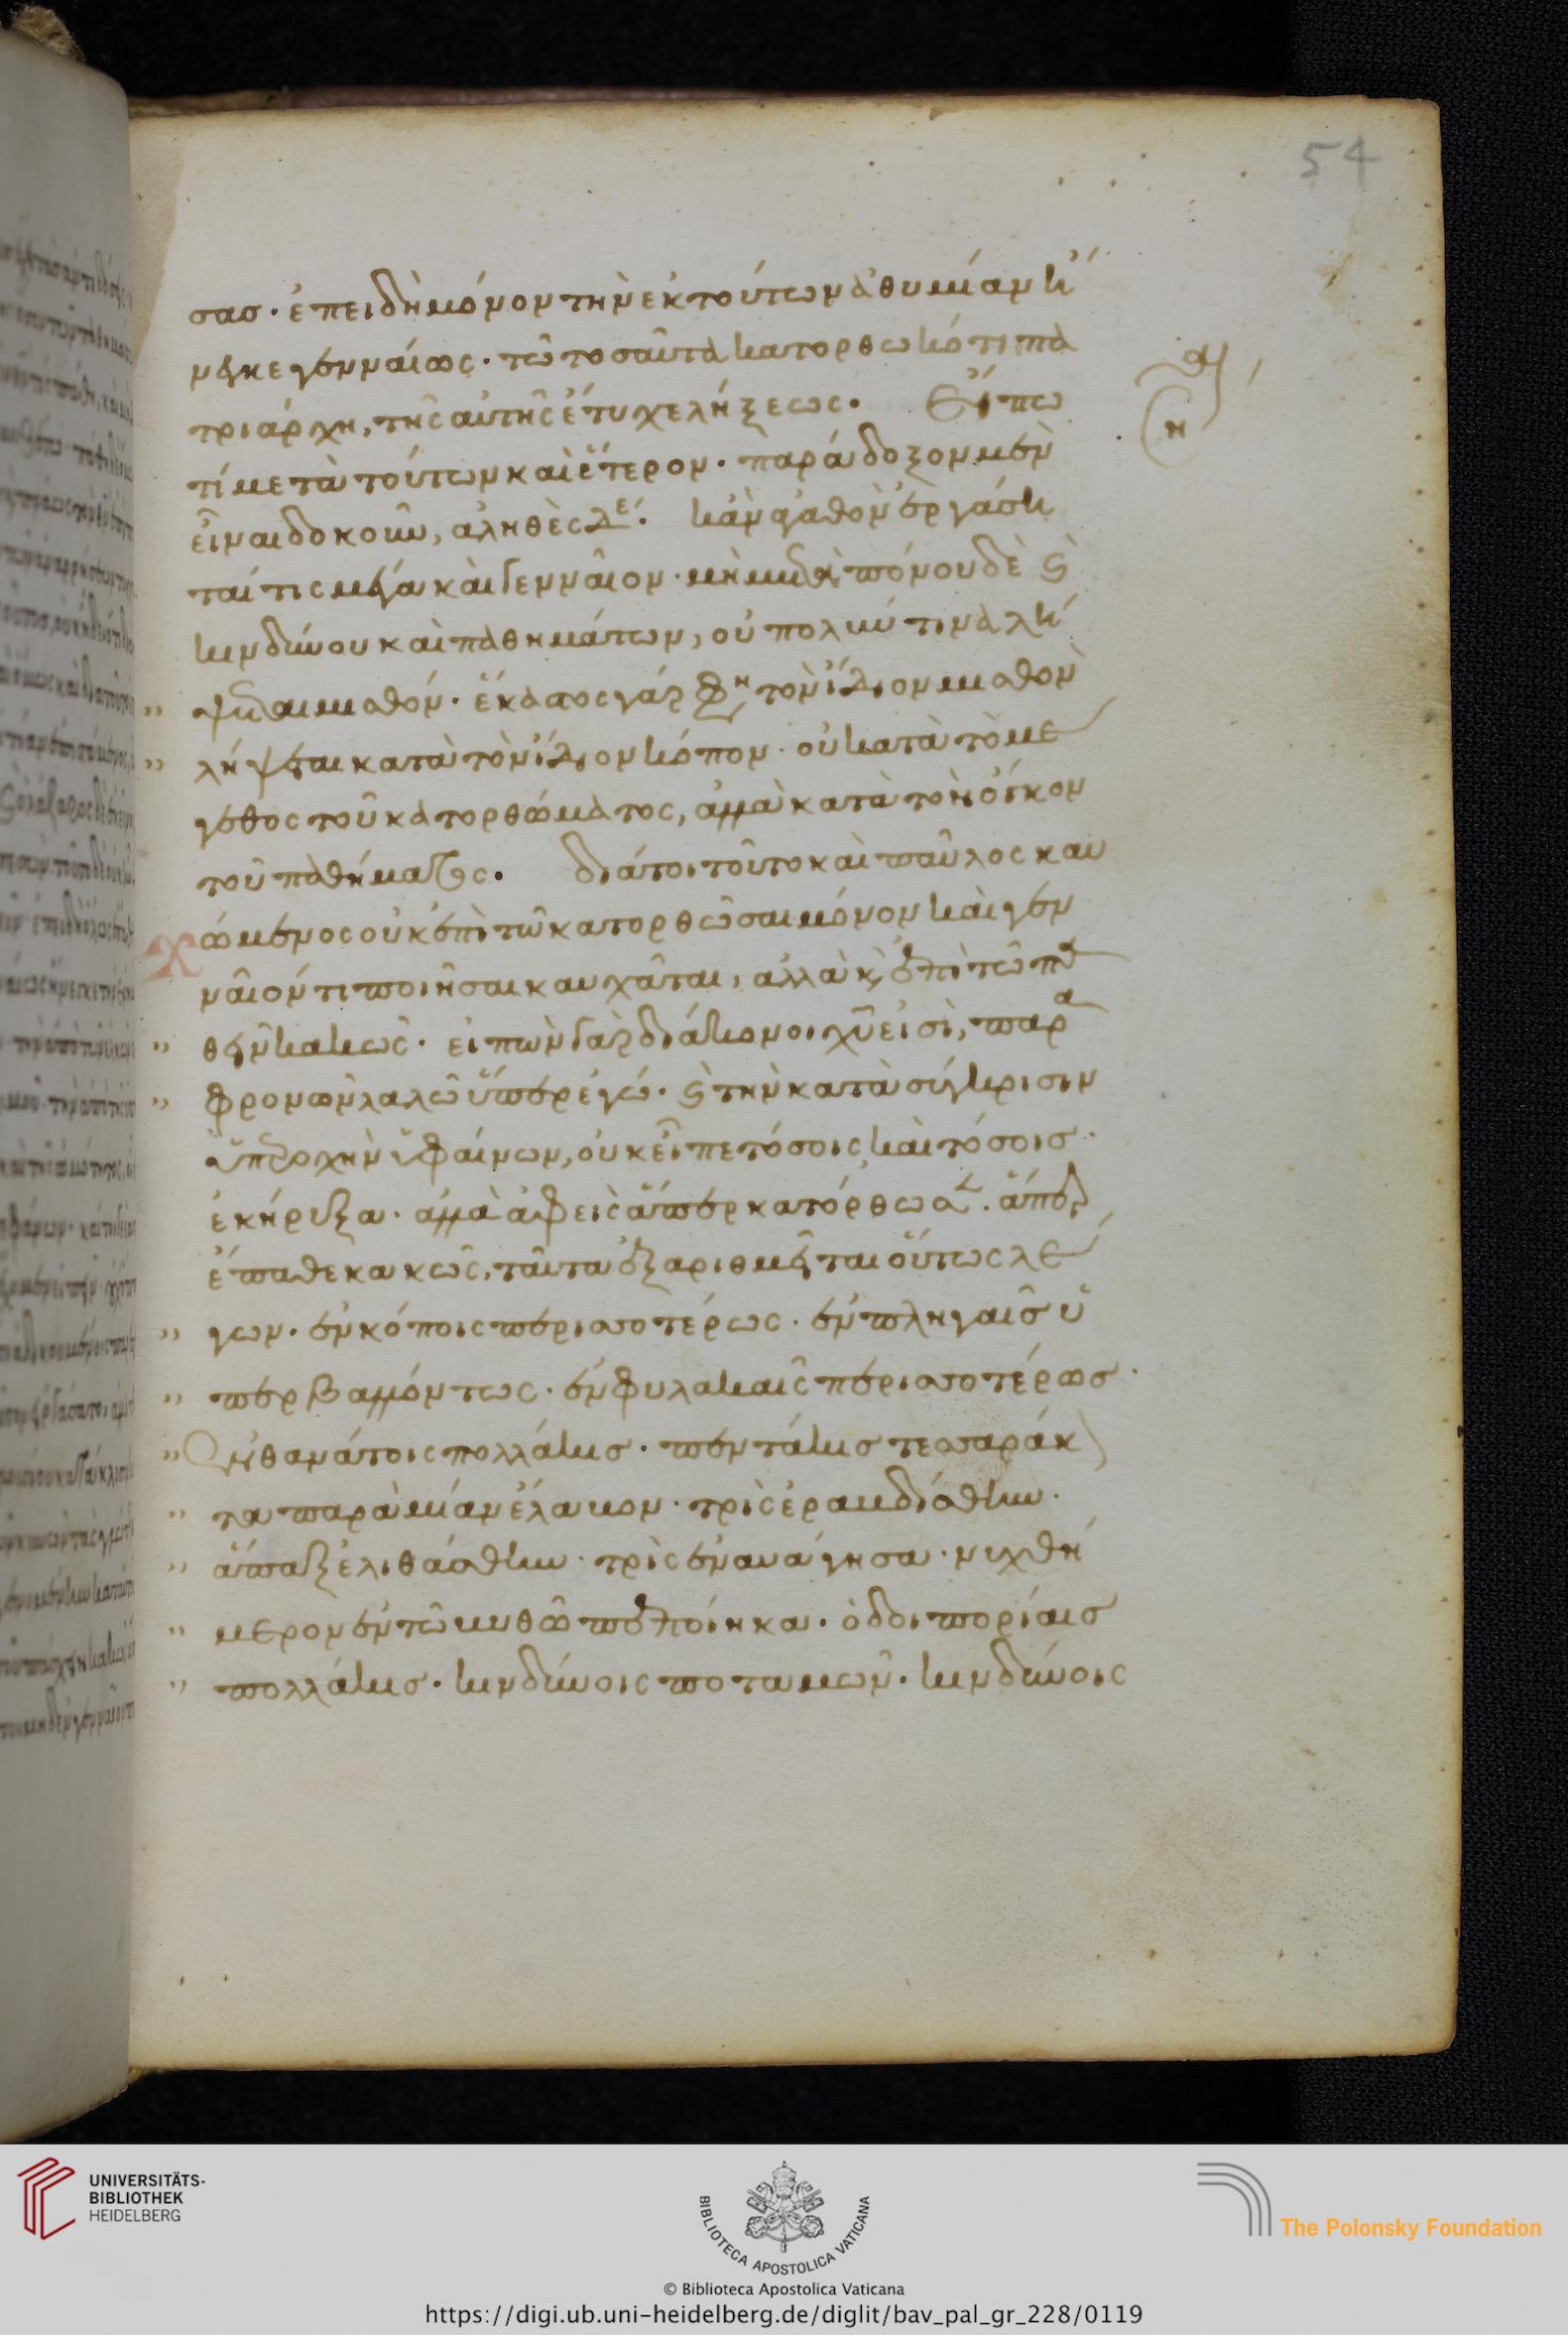 54
σας· ἐπειδὴ μόνον τὴν ἐκ τούτων ἀθυμίαν ἤ
νεγκε γενναίως· τῶ τοσαῦτα κατορθωκότι πα
τριάρχη, τῆς αὐτῆς ἔτυχε λήξεως· Εἴπω
τί μετὰ τούτων καὶ ἕτερον· παράδοξον μὲν
εἶναι δοκοῦν, ἀληθὲς δέ· κἂν ἀγαθὸν ἐργάση
ταί τις μέγα καὶ γενναῖον· μὴ μετὰ πόνου δὲ καὶ
κινδύνου καὶ παθημάτων, οὐ πολύν τινα λή
ψεται μισθόν· ἕκαστος γάρ φη τὸν ἴδιον μισθὸν
λήψεται κατὰ τὸν ἴδιον κόπον· οὐ κατὰ τὸ με
γεθος τοῦ κατορθώματος, ἀλλὰ κατὰ τὸν ὄγκον
τοῦ παθήματος· διάτοι τοῦτο καὶ παῦλος καυ
χώμενος οὐκ ἐπὶ τῶ κατορθῶσαι μόνον καὶ γεν
ναῖόν τι ποιῆσαι καυχᾶται, ἀλλὰ καὶ ἐπὶ τῶ πα
θεῖν κακῶς· εἰπὼν γὰρ διάκονοι χῦ εἰσὶ, παρα
φρονῶν λαλῶ ὕπερ ἐγώ· καὶ τὴν κατὰ σύγκρισιν
ὑπεροχὴν ὑφαίνων, οὐκ εἶπε τόσοις καὶ τόσοις·
ἐκήρυξα· ἀλλὰ ἀφεὶς ἅπερ κατόρθωσε· ἅπερ
ἔπαθε κακῶς, ταῦτα ἐξαριθμεῖται οὕτως λέ
γων· ἐν κόποις περισσοτέρως· ἐν πληγαῖς ὑ
περβαλλόντως· ἐν φυλακαῖς περισσοτέρως·
Ἐν θανάτοις πολλάκις· πεντάκις τεσσαράκ
τα παρὰ μίαν ἔλαβον· τρὶς ἐραβδίσθην·
ἅπαξ ἐλιθάσθην· τρὶς ἐναυάγησα· νυχθή
μερον ἐν τῶ βυθῶ πεποίηκα· ὁδοιπορίαις
πολλάκις· κινδύνοις ποταμῶν· κινδύνοις
UNIVERSITÄTS-
BIBLIOTHEK
HEIDELBERG
BIBLIOTECA APOSTOLICA VATICANA
The Polonsky Foundation
© Biblioteca Apostolica Vaticana
https://digi.ub.uni-heidelberg.de/diglit/bav_pal_gr_228/0119